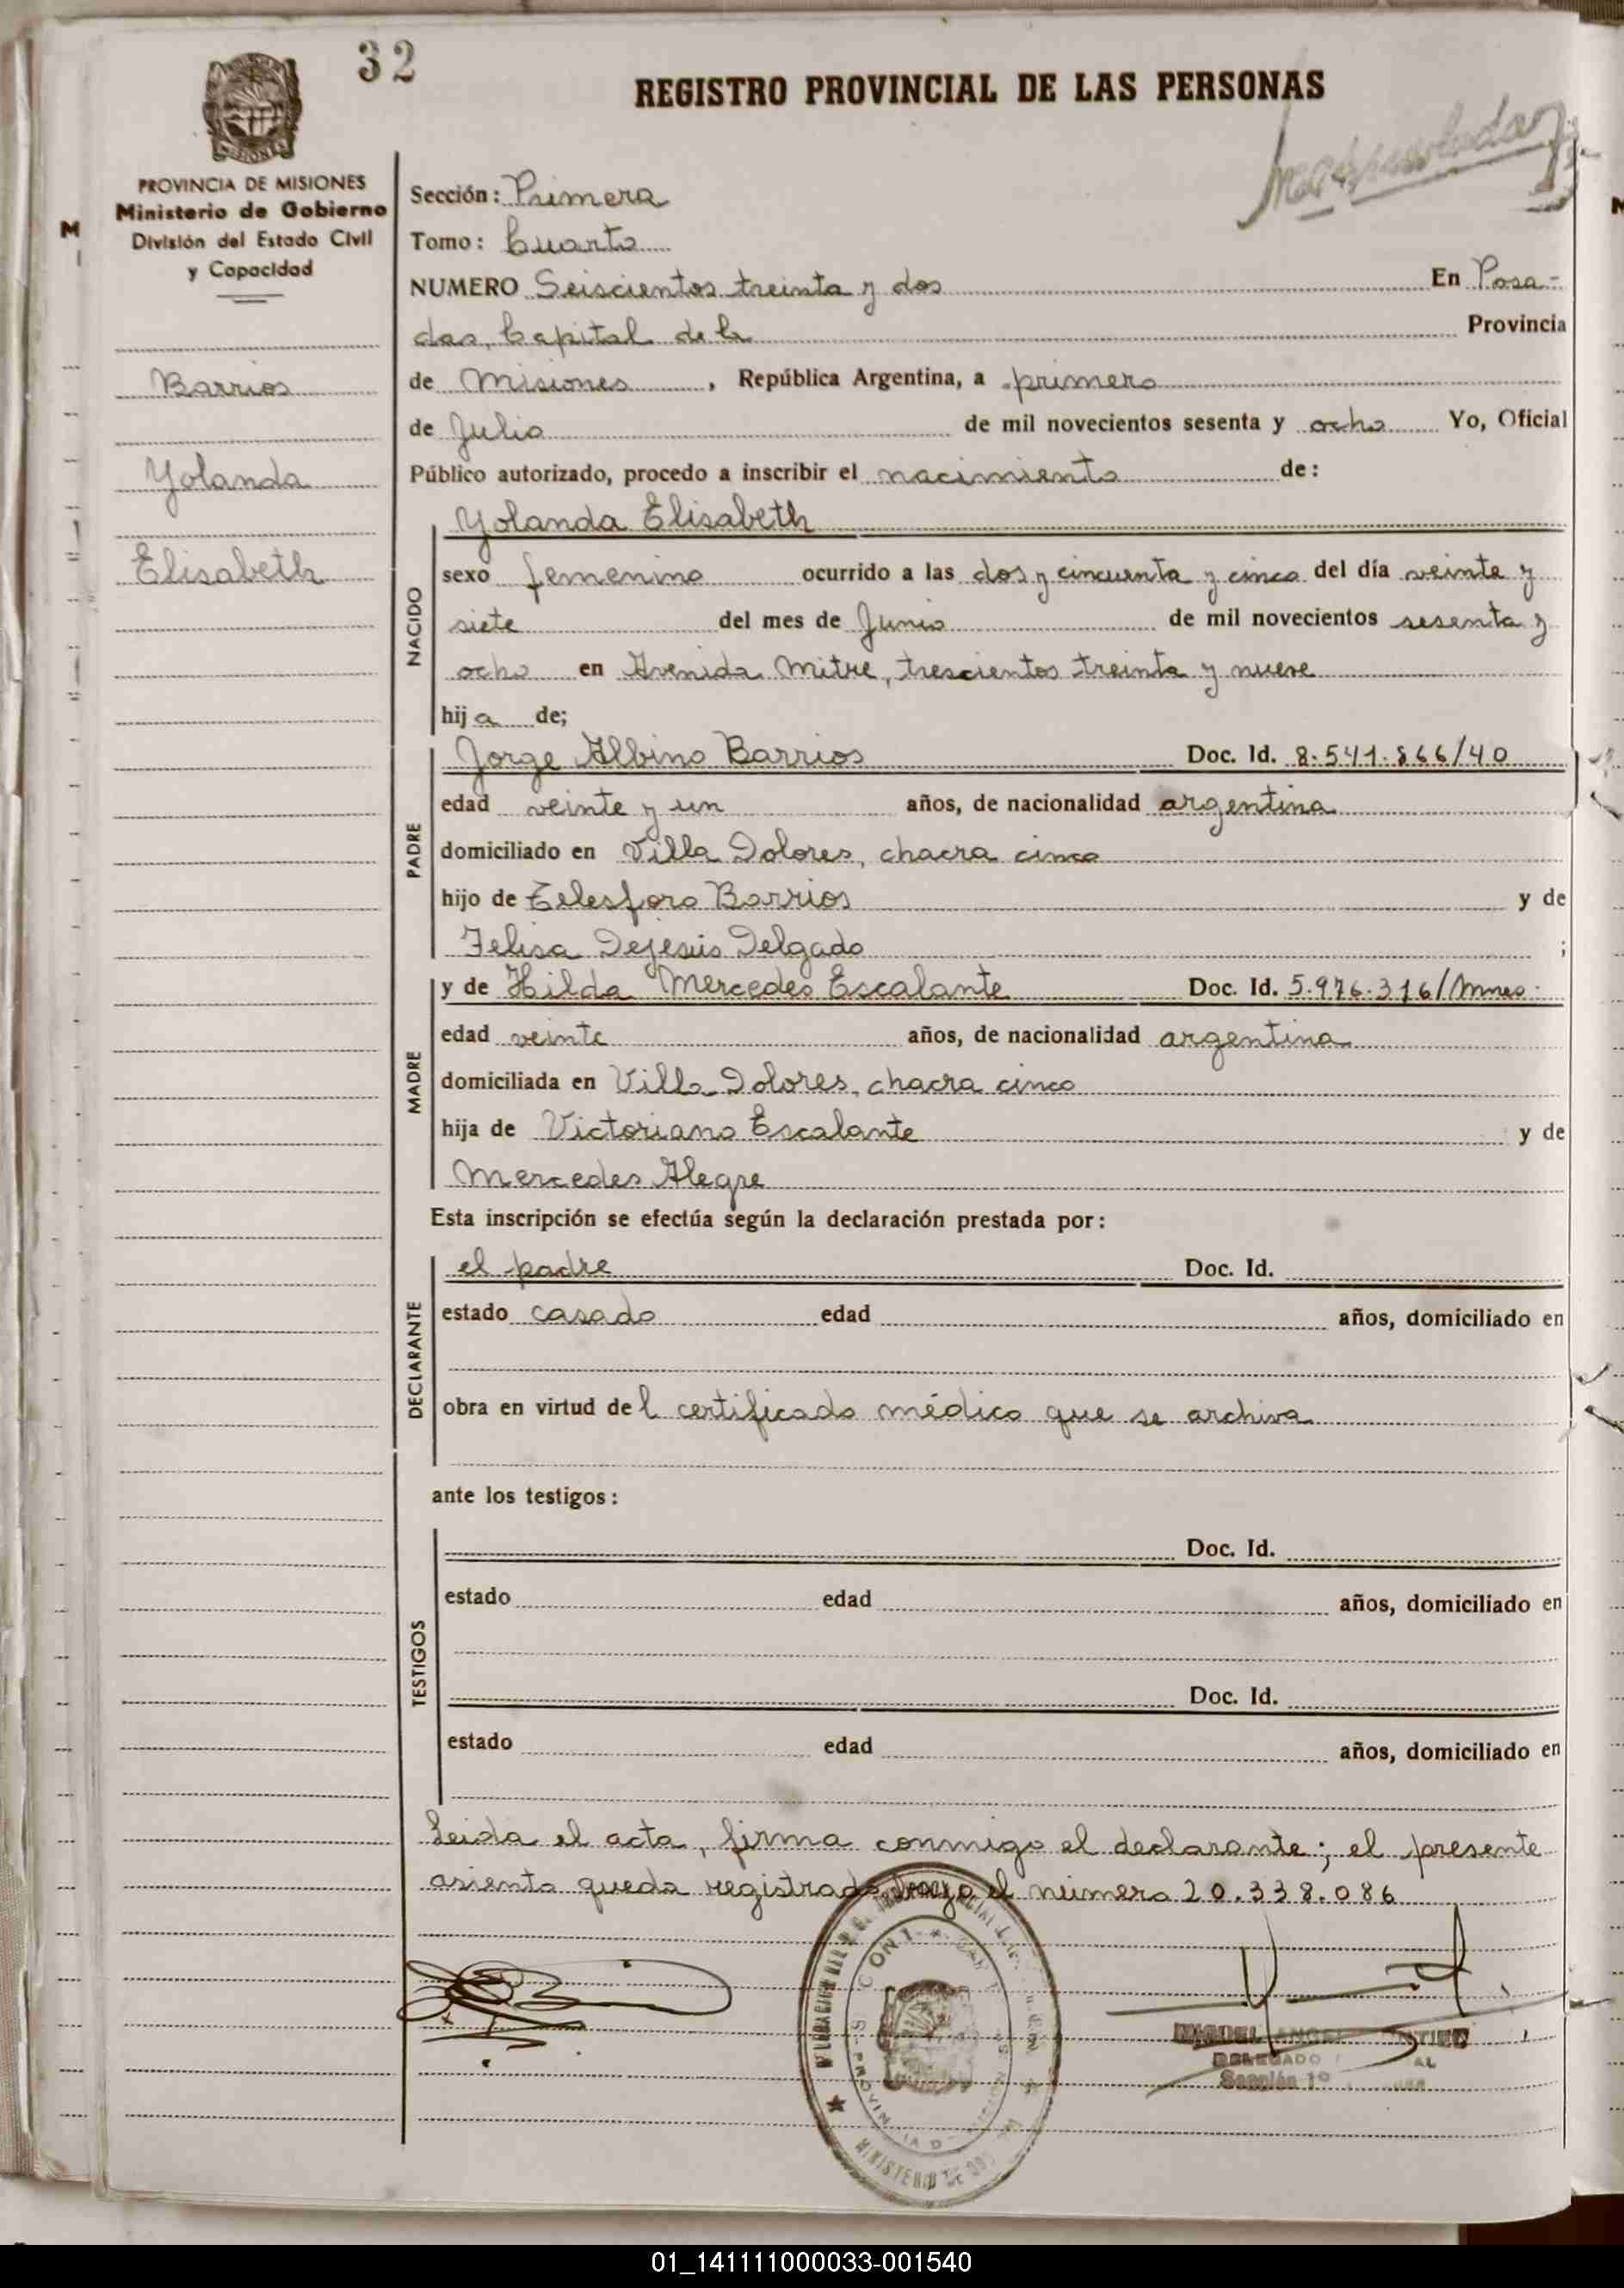 32
REGISTRO PROVINCIAL DE LAS PERSONAS
PROVINCIA DE MISIONES
Ministerio de Gobierno
División del Estado Civil
y Capacidad
Barrios
Yolanda
Elisabeth
Sección: Primera
Tomo: Cuarto
NUMERO Seiscientos treinta y dos En Posa-
das, Capital de la Provincia
de Misiones, República Argentina, a primero
de Julio de mil novecientos sesenta y ocho Yo, Oficial
Público autorizado, procedo a inscribir el nacimiento de:
NACIDO
Yolanda Elisabeth
sexo femenino ocurrido a las dos y cincuenta y cinco del día veinte y
siete del mes de Junio de mil novecientos sesenta y
ocho en Avenida Mitre, trescientos treinta y nueve
hija de;
PADRE
Jorge Albino Barrios Doc. Id. 8.541.866/40
edad veinte y un años, de nacionalidad argentina
domiciliado en Villa Dolores, chacra cinco
hijo de Telesforo Barrios y de
Felisa Dejesús Delgado ;
MADRE
y de Hilda Mercedes Escalante Doc. Id. 5.976.316/Mnes.
edad veinte años, de nacionalidad argentina
domiciliada en Villa Dolores, chacra cinco
hija de Victoriano Escalante y de
Mercedes Alegre
Esta inscripción se efectúa según la declaración prestada por:
DECLARANTE
el padre Doc. Id.
estado casado edad años, domiciliado en
obra en virtud del certificado médico que se archiva
ante los testigos:
TESTIGOS
Doc. Id.
estado edad años, domiciliado en
Doc. Id.
estado edad años, domiciliado en
Leida el acta, firma conmigo el declarante; el presente
asiento queda registrado bajo el número 20.338.086
MIGUEL ANGEL
DELEGADO
Sección 1º
MINISTERIO DE
01_141111000033-001540